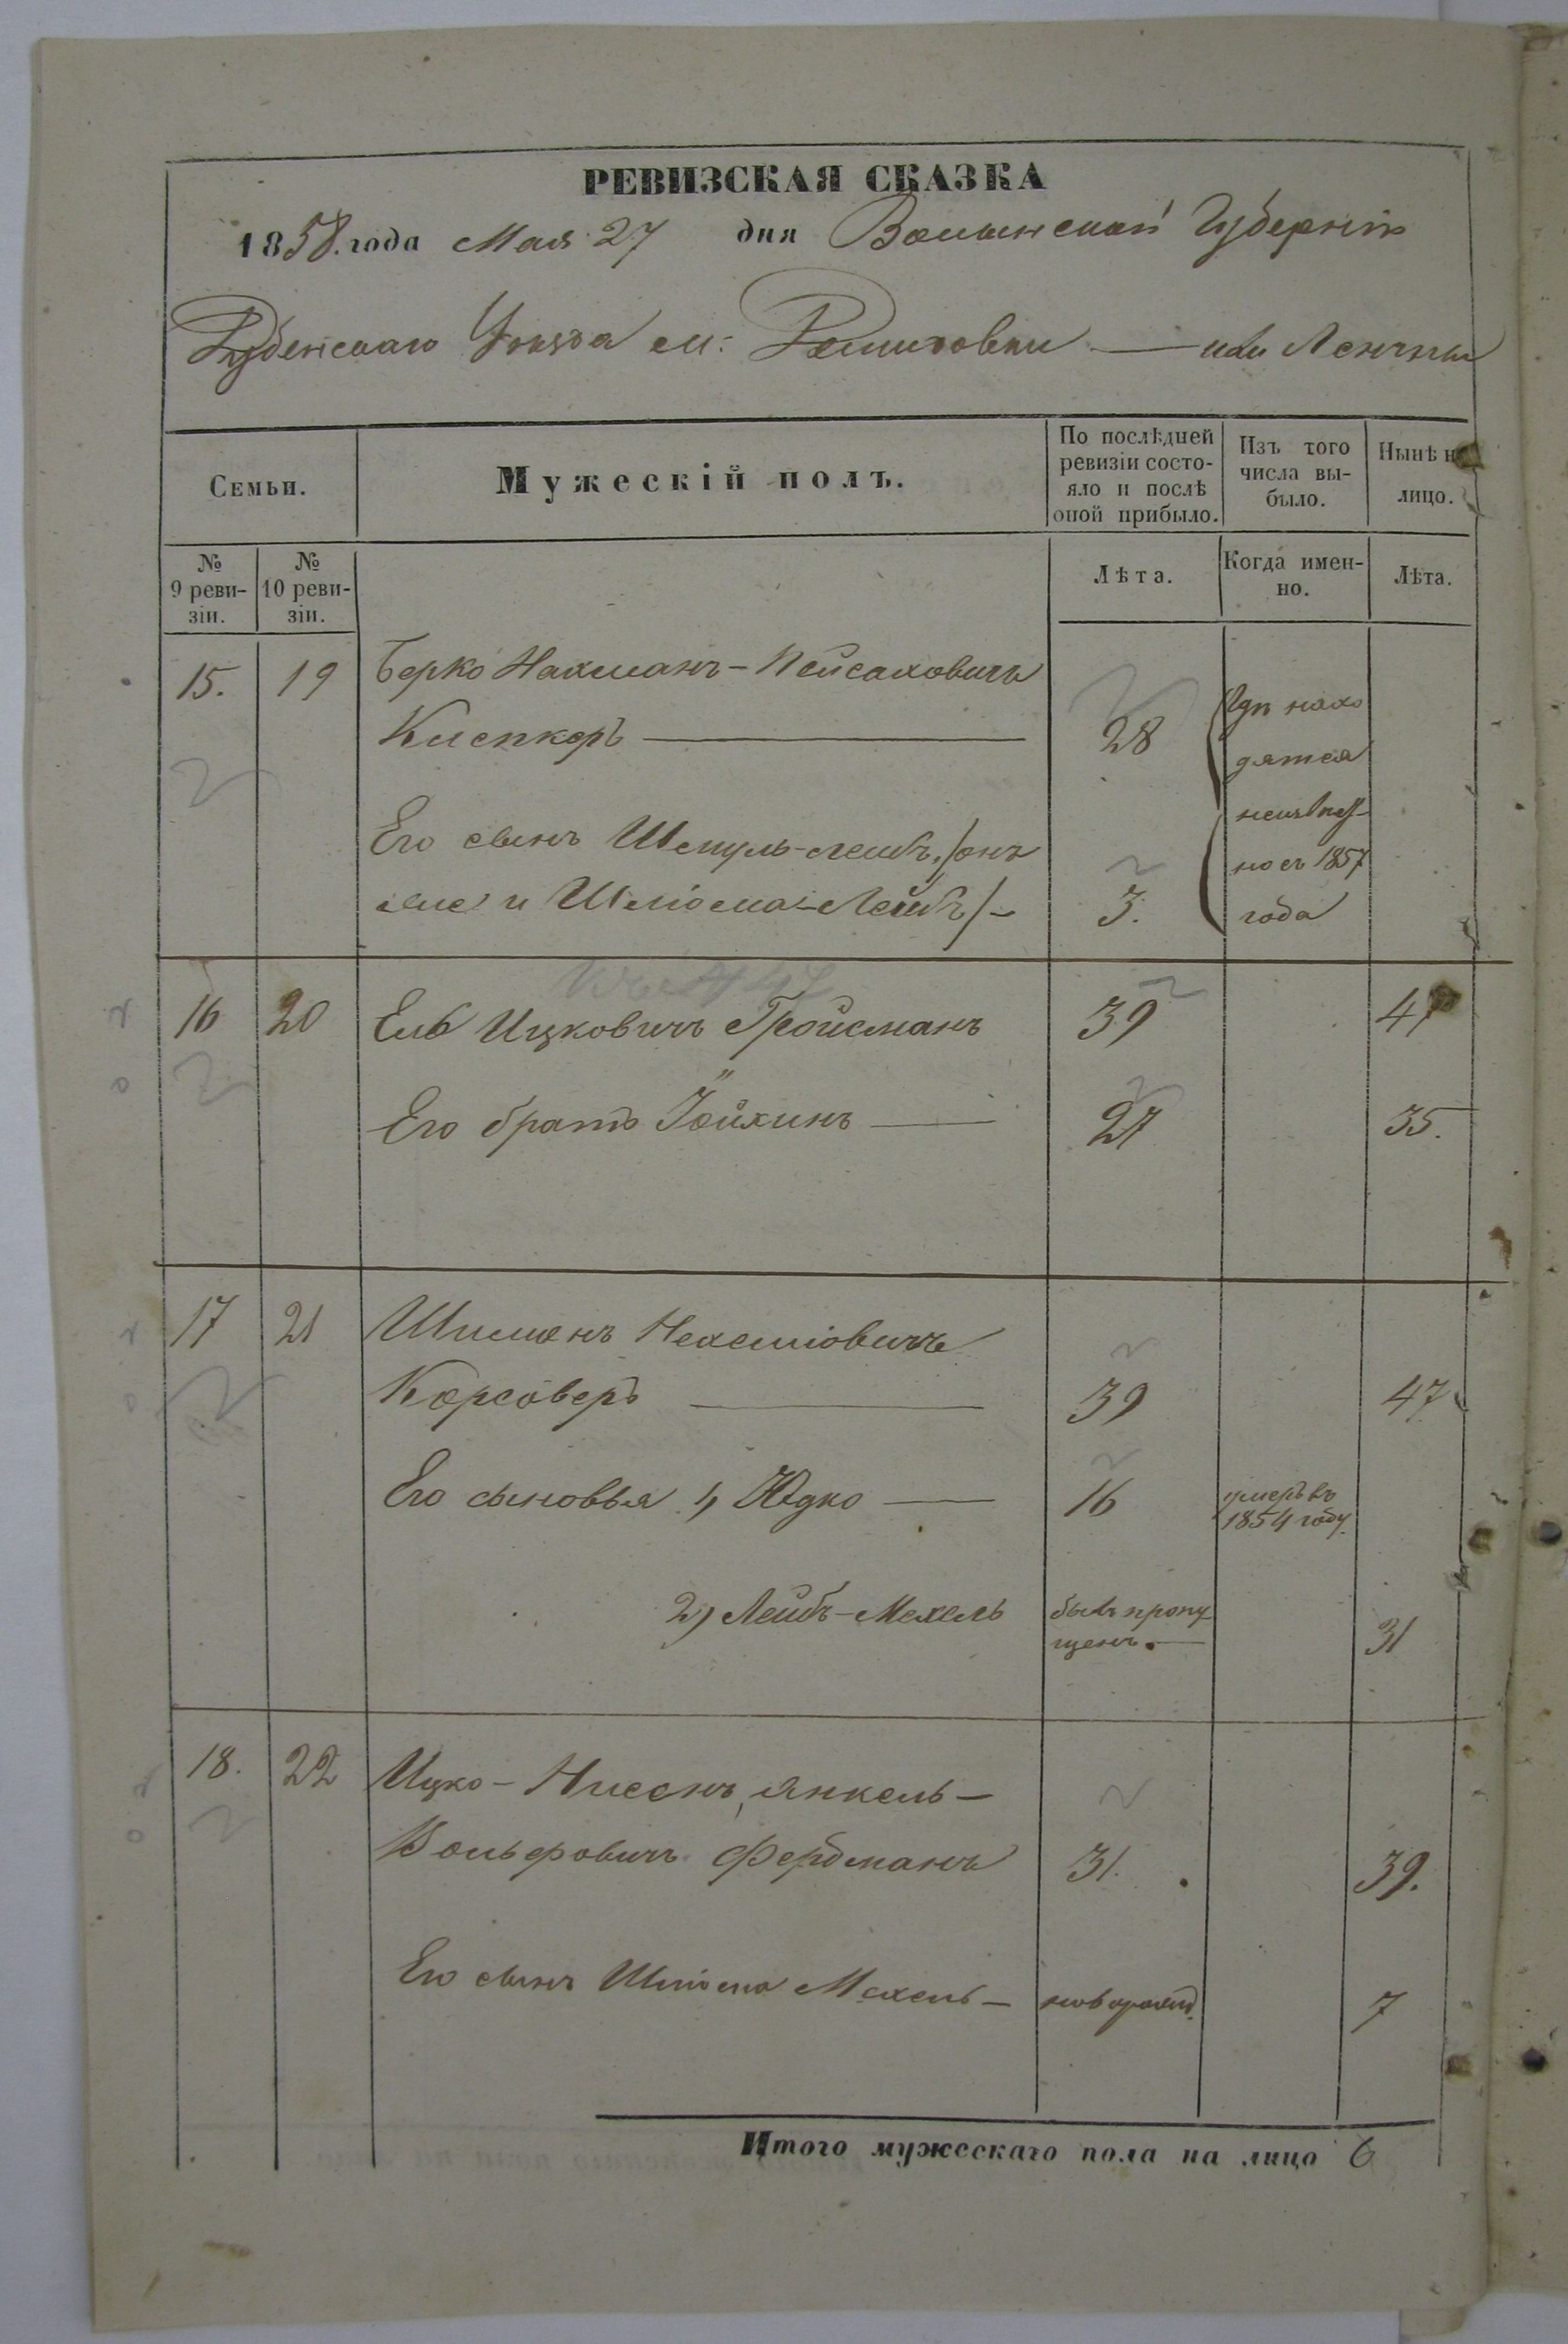 РЕВИЗСКАЯ СКАЗКА
1858. года Мая 27 дня Волынской Губернiи
Дубенскаго Уѣзда м: или
Семьи.
Мужескiй полъ.
По послѣдней ревизiи состо-
яло и послѣ
оной прибыло.
Изъ того
числа вы-
было.
Нынѣ на
лицо.
№
9 реви-
зiи.
№
10 реви-
зiи.
Лѣта.
Когда имен-
но.
Лѣта.
15. 19 Берко Нахманъ-Пейсаховичъ
28
Его сынъ Шмуль-Лейбъ, /онъ
же и Шлiома-Лейбъ/- 3.
гдѣ нахо
дятся
неизвѣст-
но съ 1857
года
16 20 Ель Ицковичъ Гройсманъ 39 47
Его братъ Iойхинъ 27 35.
17 21 Шимонъ Нехемiовичъ
Корсоверъ 39 47
Его сыновья 1, Юдко 16 умеръ въ
1854 году.
2, Лейбъ-Мехель былъ пропу
щенъ. 31
18. 22 Ицко-Нисенъ, Янкель-
Вольфовичъ Фербманъ 31. 39.
Его сынъ Шлiома Мехель- новорожд. 7
Итого мужескаго пола на лицо 6